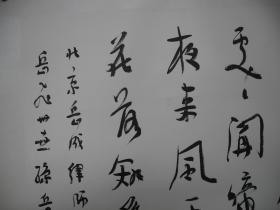 处ミ闻啼
夜来风
花落知
北京岳成律师
岳飞卅世孙岳